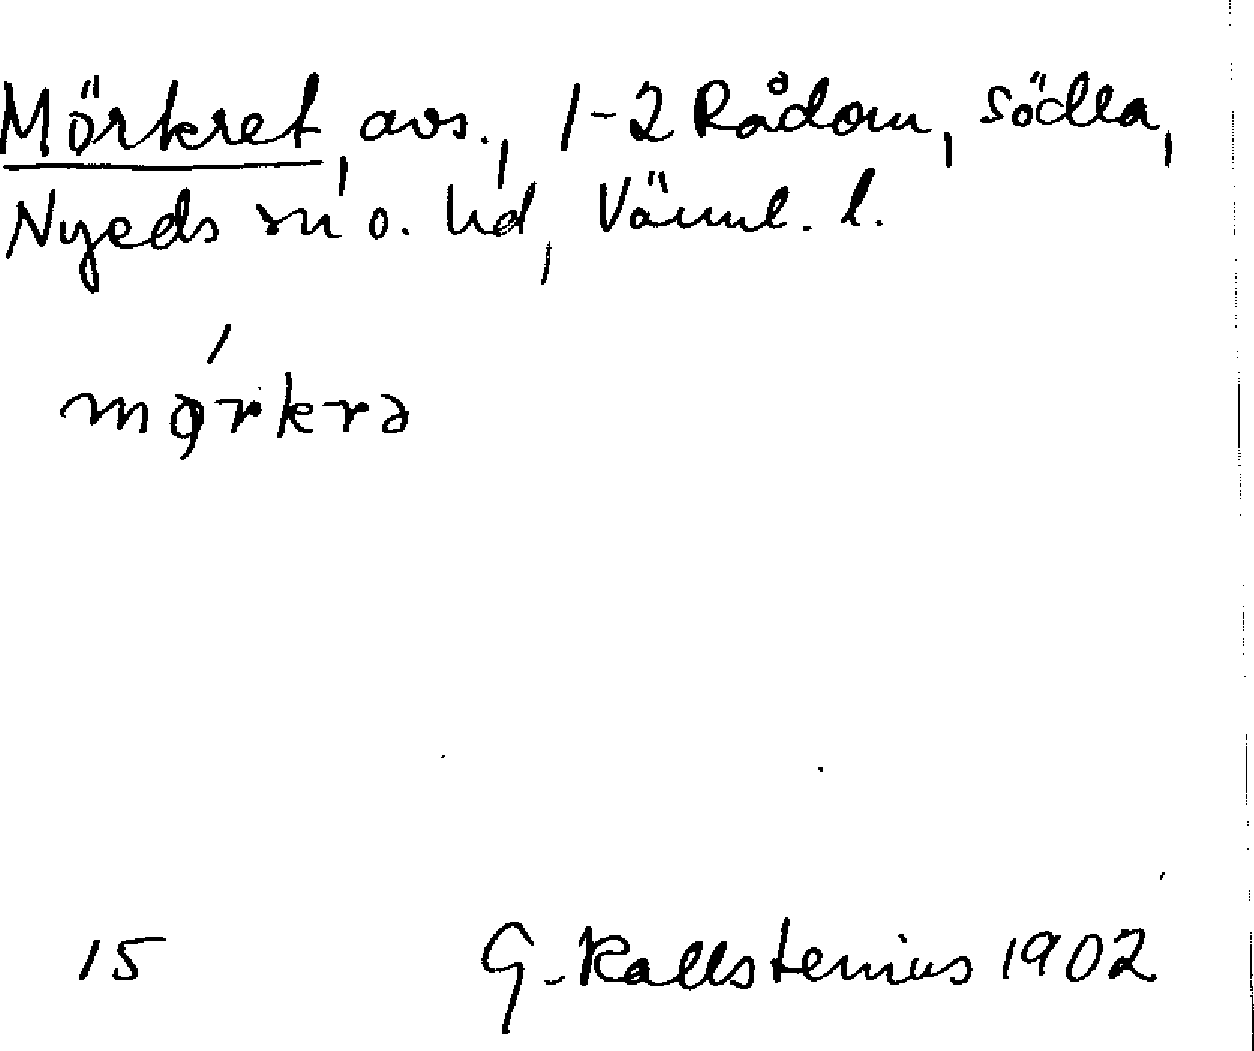 Mörkret, avs., 1-2 Rådom, södra,
Nyeds sn o. hd, Värml. l.
mǫ́rkrə
15 G. Kallstenius 1902